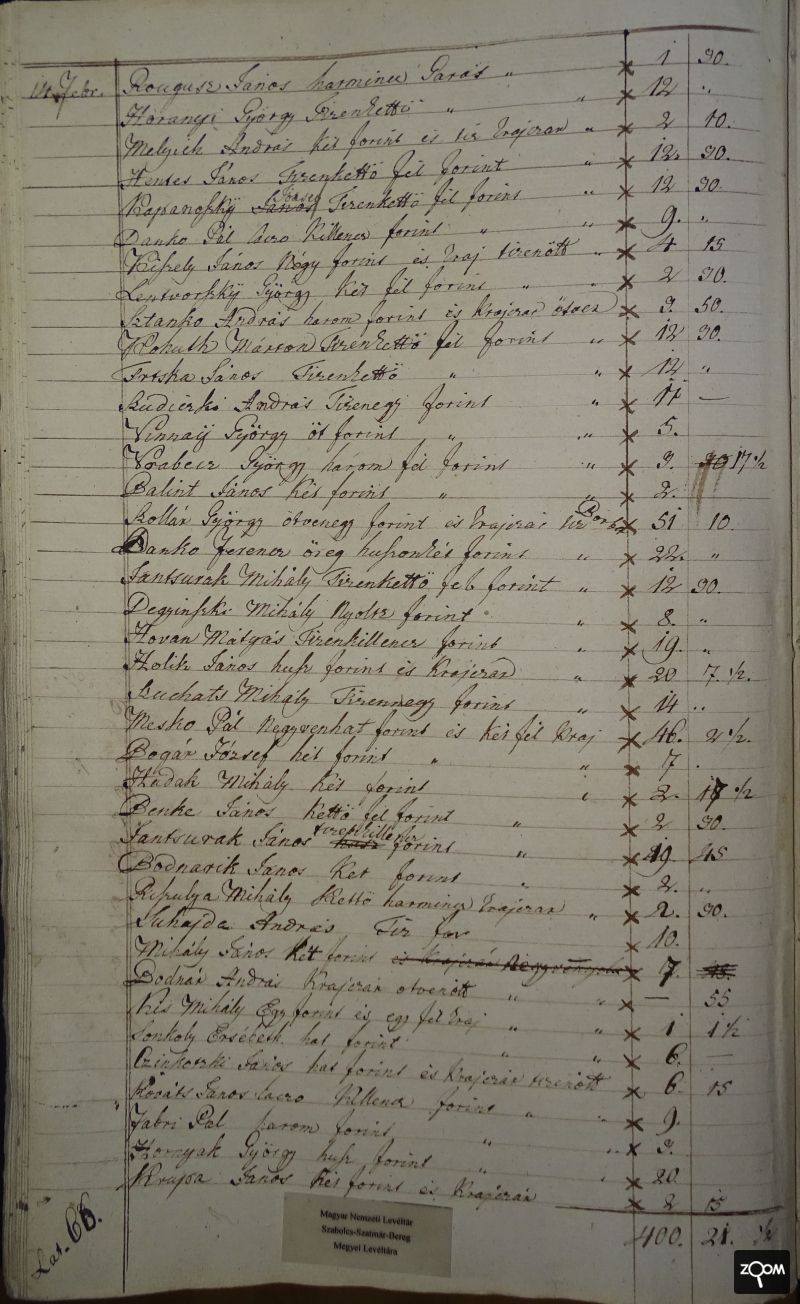 14. Febr. Rougusz János harmincz Garas " x 1 30.
Horanyi György Tizenkettö " " x 12 "
Melyich András két forint és tíz krajczar " x 2 10.
Hentes János Tizenkettö fél forint " x 12. 30.
Kapanofsky János József Tizenkettö fél forint " x 12 30.
Danko Pál lacro Killencz forint " " x 9. "
Kifsely János Négy forint és kraj tizenött " x 4 15
Lentvorfsky György két fél forint " " x 2 30.
Sztanko András harom forint és krajczar ötven x 3. 50.
Kohuth Márton Tizenkettö fél forint " x 12 30.
Friska János Tizenkettö " " x 12 "
Rudiczki András Tizenegy forint " x 11 —
Vinnaij György öt forint " " x 5.
Vrabecz György három fél forint " x 3. 30 17 ½
Balint János két forint " " x 2.
Kollár György ötvenegy forint és krajczár tíz Bor x 51 10.
Danko Ferencz öreg hufsonkét forint " x 22. "
Jantsurak Mihály Tizenkettö feb forint " x 12 30.
Degyinfski Mihály Nyoltz forint " " x 8. "
Hovan Mátyás Tizenkillencz forint " x 19. "
Holik János hufs forint és krajczar " x 20 7. ½.
Buchats Mihály Tizennegy forint " x 14 "
Mesko Pál Negyvenhat forint és két fél kraj x 46. 2 ½.
Bogár József hét forint " " x 7 .
Hudak Mihály két forint " x 2. 17 ½
Benke János kettö fel forint " x 2 30.
Jantsurak János husz tizenkillencz forint " x 19. 45
Bodnarik János Ket forint " x 2. "
Rifsulya Mihály Kettö harmincz krajczar " x 2. 30.
Suhajda András Tiz for x 10.
Mihály János két forint és krajczár Negyvenyolcz x 7. 48.
Bodnár András Krajczár otvenött " " x — 55
Kis Mihály Egy forint és egy fél kraj " " x 1 1 ½
Sonkoly Ersébeth hat forint " " x 6. —
Czinkotzki János hat forint és krajczár tizenött x 6. 15
" Kováts János lacro killencz forint " " x 9.
Fabri Pál harom forint " " x 3.
Hornyak György hufs forint " " x 20.
Krupa János két forint és krajczár x 2 15
Lat. 66. 400. 21. ½
Magyar Nemzeti Levéltár
Szabolcs-Szatmár-Bereg
Megyei Levéltára
ZOOM